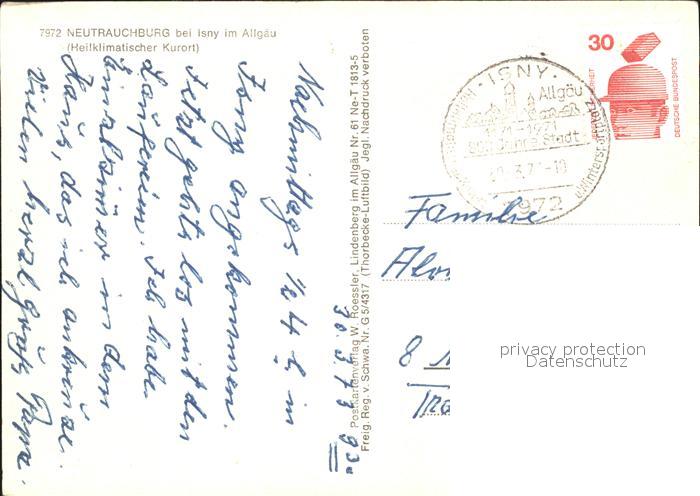 7972 NEUTRAUCHBURG bei Isny im Allgäu
(Heilklimatischer Kurort)
Nachmittags ½ 4 h in
Isny angekommen.
Jetzt geht's los mit den
Läufereien. Ich habe
Einzelzimmer in dem
Haus, das ich ankreuze.
Vielen herzl. Grüße Papa.
30.3.73
Postkartenverlag W. Roessler, Lindenberg im Allgäu Nr. 61 Ne-T 1813-5
Freig. Reg. v. Schwa. Nr. G 5/4317 (Thorbecke-Luftbild) Jegl. Nachdruck verboten
· ISNY ·
Allgäu
800 Jahre Stadt
u. Wintersportplatz
7972
30
DEUTSCHE BUNDESPOST
Familie
8
privacy protection
Datenschutz